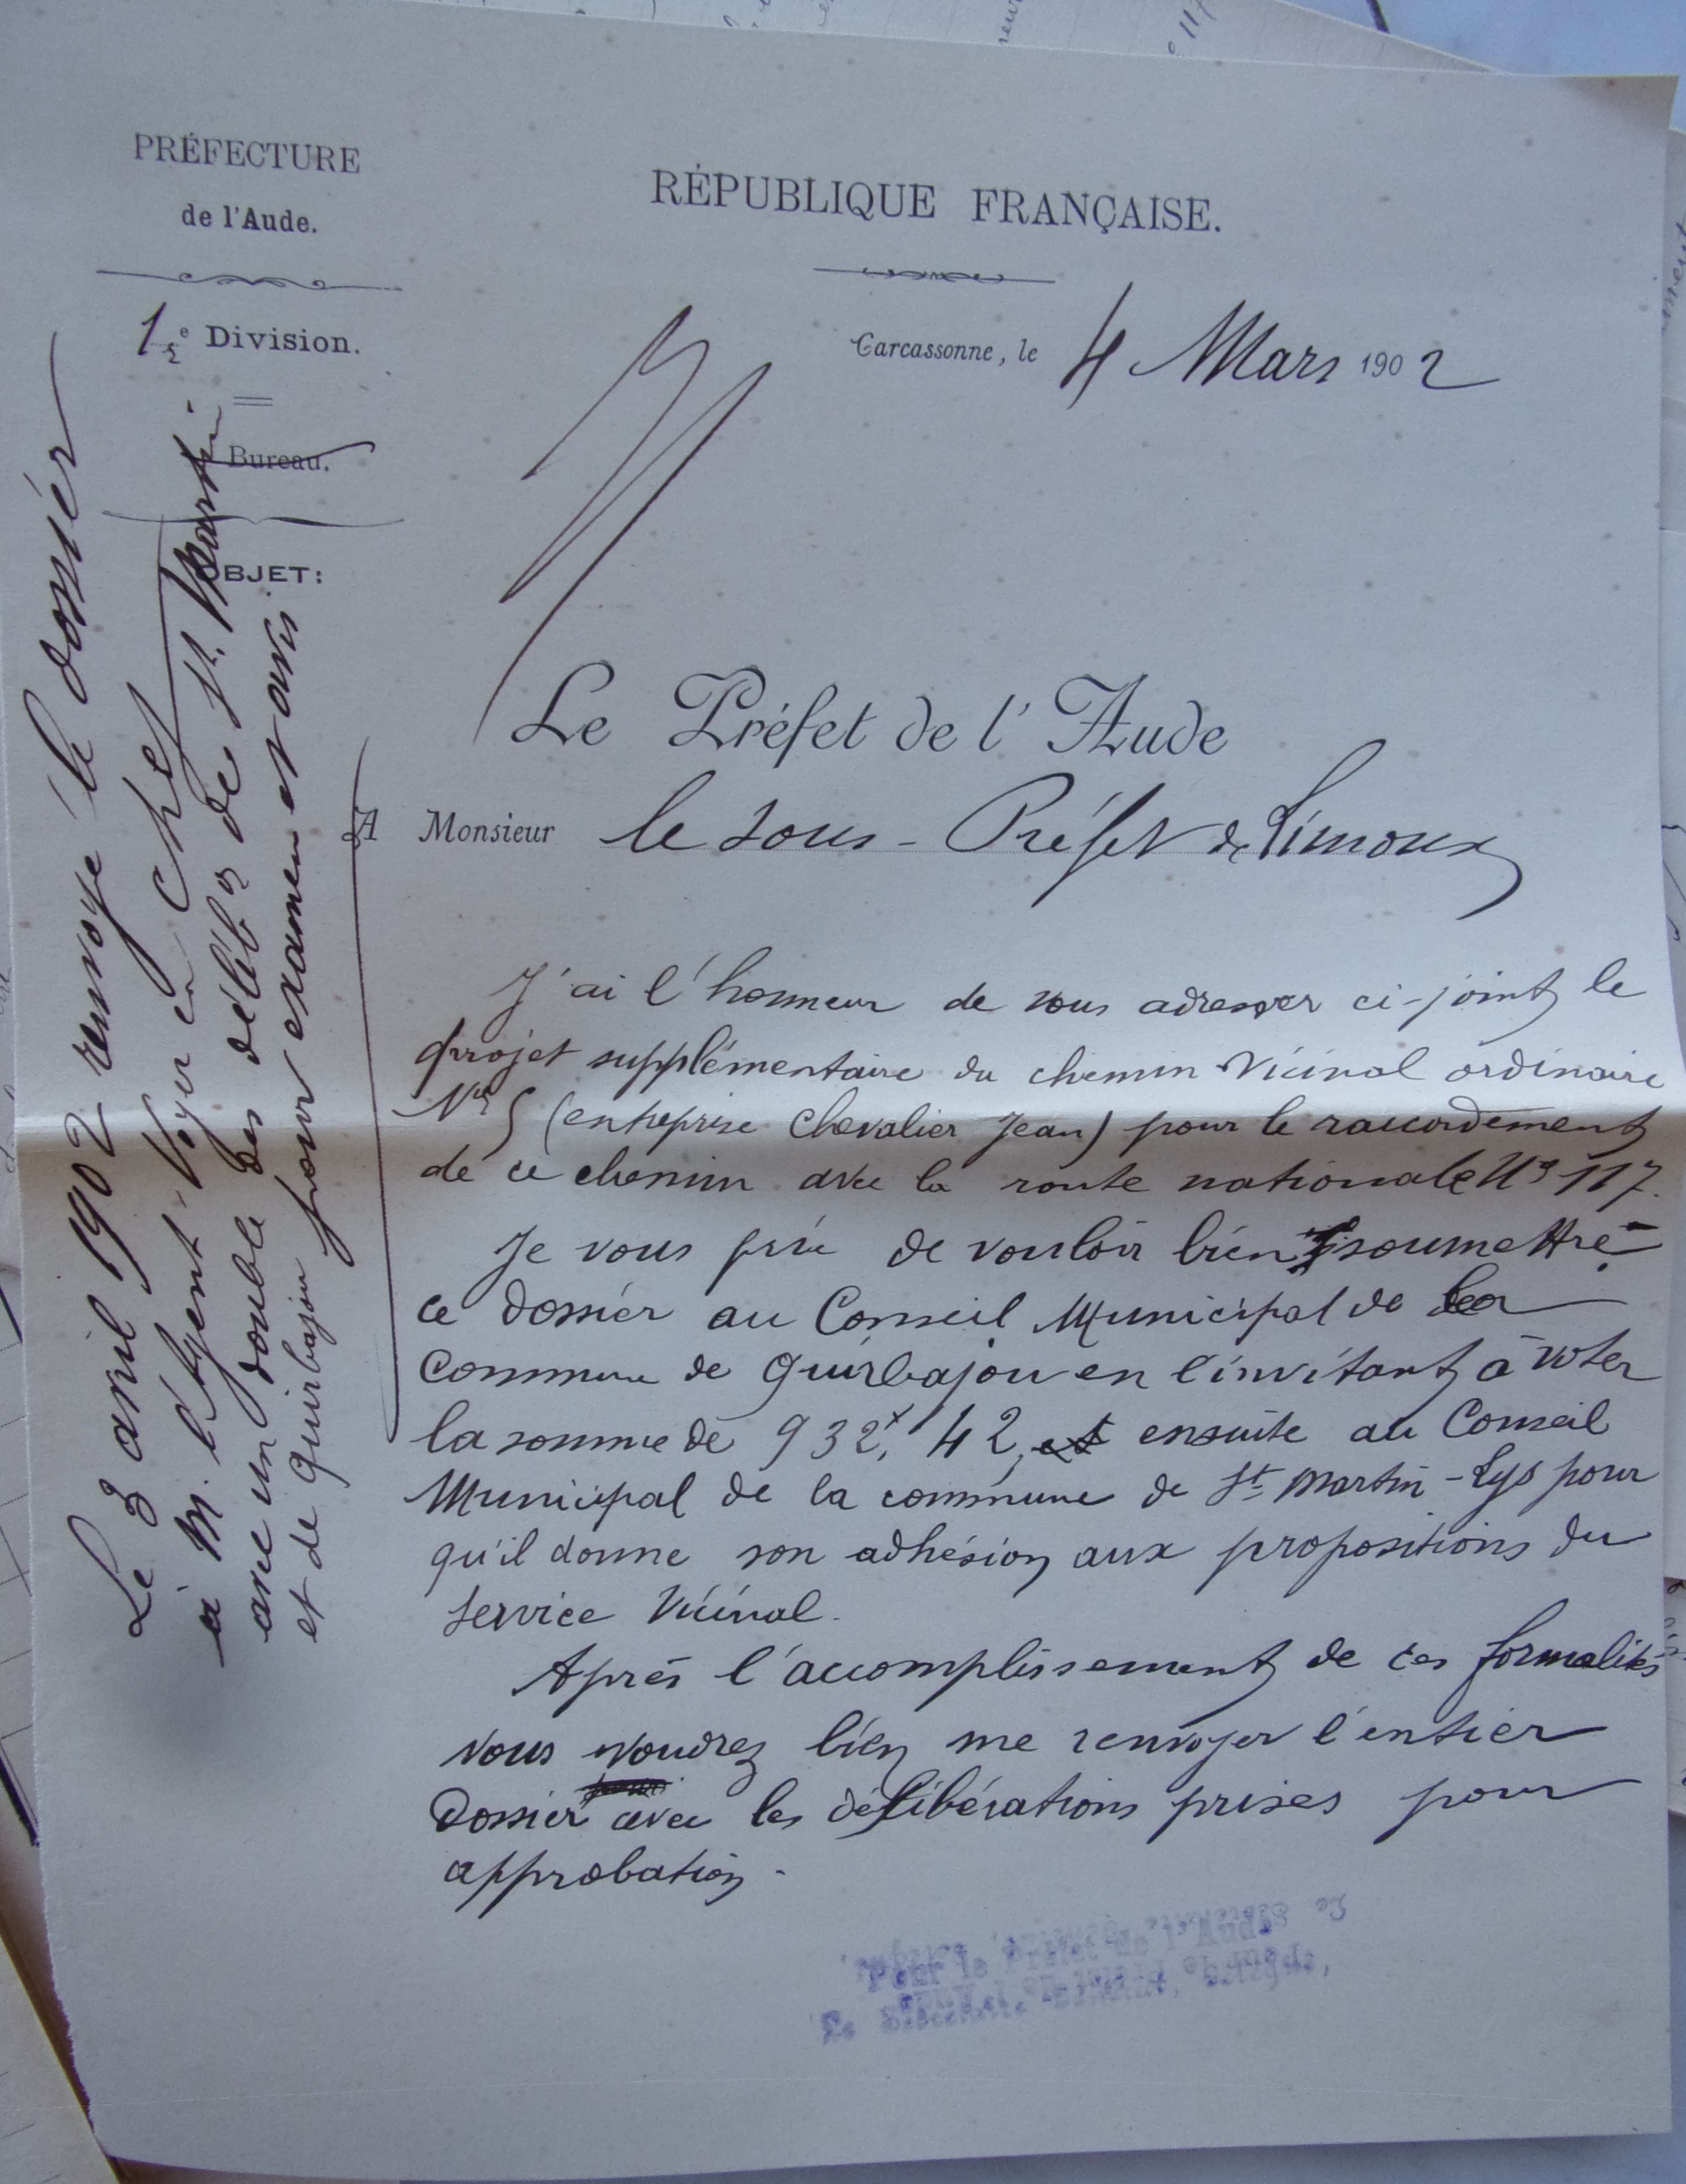 PRÉFECTURE
de l'Aude.
1re Division.
Bureau.
OBJET:
RÉPUBLIQUE FRANÇAISE.
Carcassonne, le 4 Mars 1902
Le Préfet de l'Aude
A Monsieur le Sous-Préfet de Limoux
J'ai l'honneur de vous adresser ci-joint le
projet supplémentaire du chemin Vicinal ordinaire
No 5 (entreprise Chevalier Jean) pour le raccordement
de ce chemin avec la route nationale No 117.
Je vous prie de vouloir bien soumettre
ce dossier au Conseil Municipal de la
Commune de Quirbajou en l'invitant à voter
la somme de 932f, 42, et ensuite au Conseil
Municipal de la commune de St Martin-Lys pour
qu'il donne son adhésion aux propositions du
Service Vicinal.
Après l'accomplissement de ces formalités
vous voudrez bien me renvoyer l'entier
Dossier avec les délibérations prises pour
approbation.
Pour le Préfet de l'Aude
Le Secrétaire Général, délégué,
Le 3 avril 1902 renvoyé le dossier
à M. l'Agent-Voyer en Chef
avec un double des délibons de St. Martin
et de Quirbajou pour examen et avis